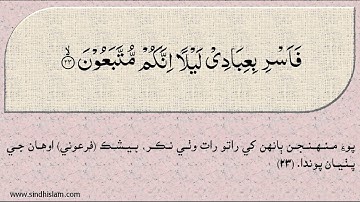 فَاَسْرِ بِعِبَادِیْ لَيْلًا اِنَّكُمْ مُّتَّبَعُوْنَ ۙ﴿۲۳﴾
پوءِ منهنجن ٻانهن کي راتو رات وٺي نڪر، بيشڪ (فرعوني) اوهان جي
پٺيان پوندا. (۲۳)
www.sindhislam.com